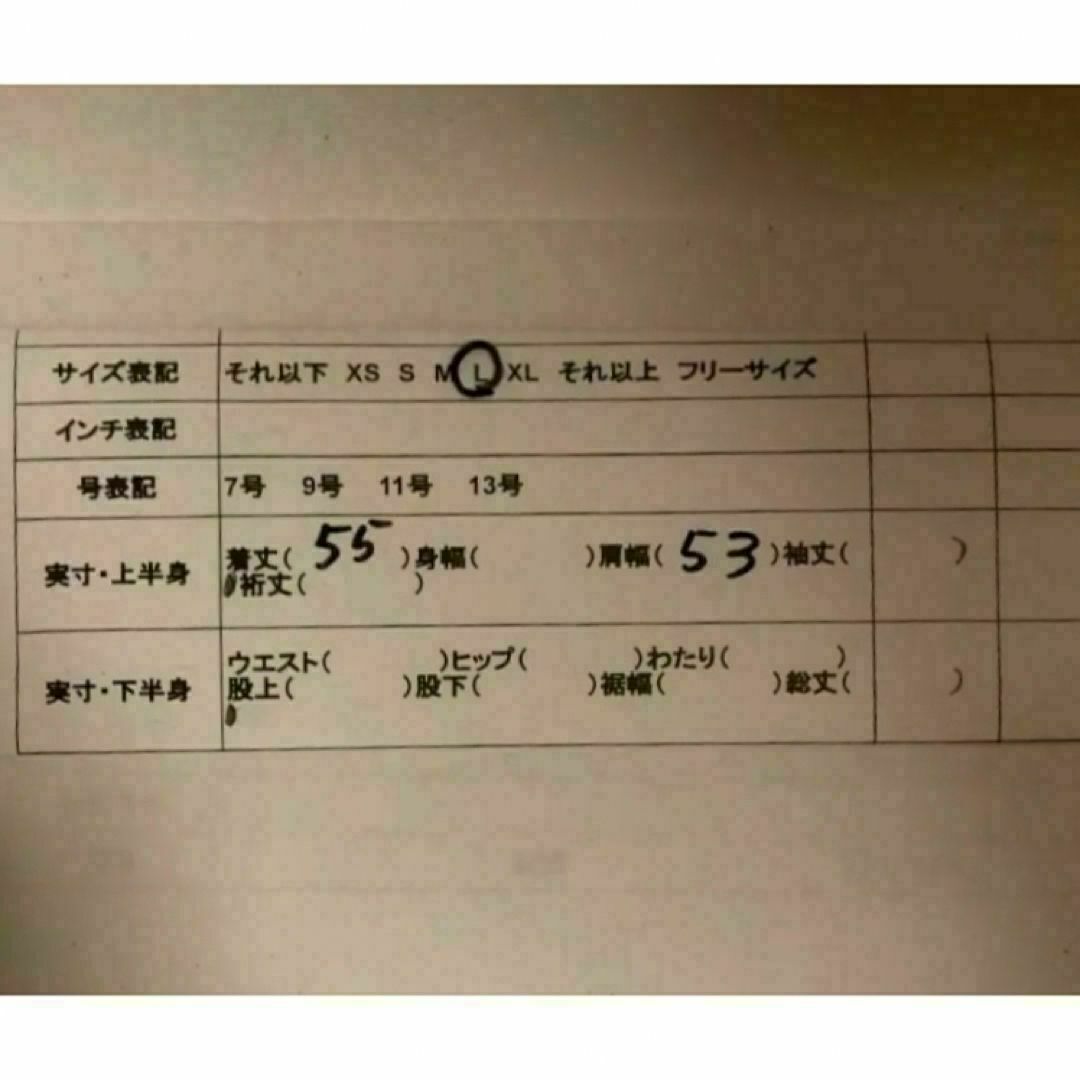 サイズ表記 それ以下 XS S M L XL それ以上 フリーサイズ
インチ表記
号表記 7号 9号 11号 13号
実寸・上半身 着丈( 55 )身幅( )肩幅( 53 )袖丈( )
裄丈( )
実寸・下半身 ウエスト( )ヒップ( )わたり( )
股上( )股下( )裾幅( )総丈( )